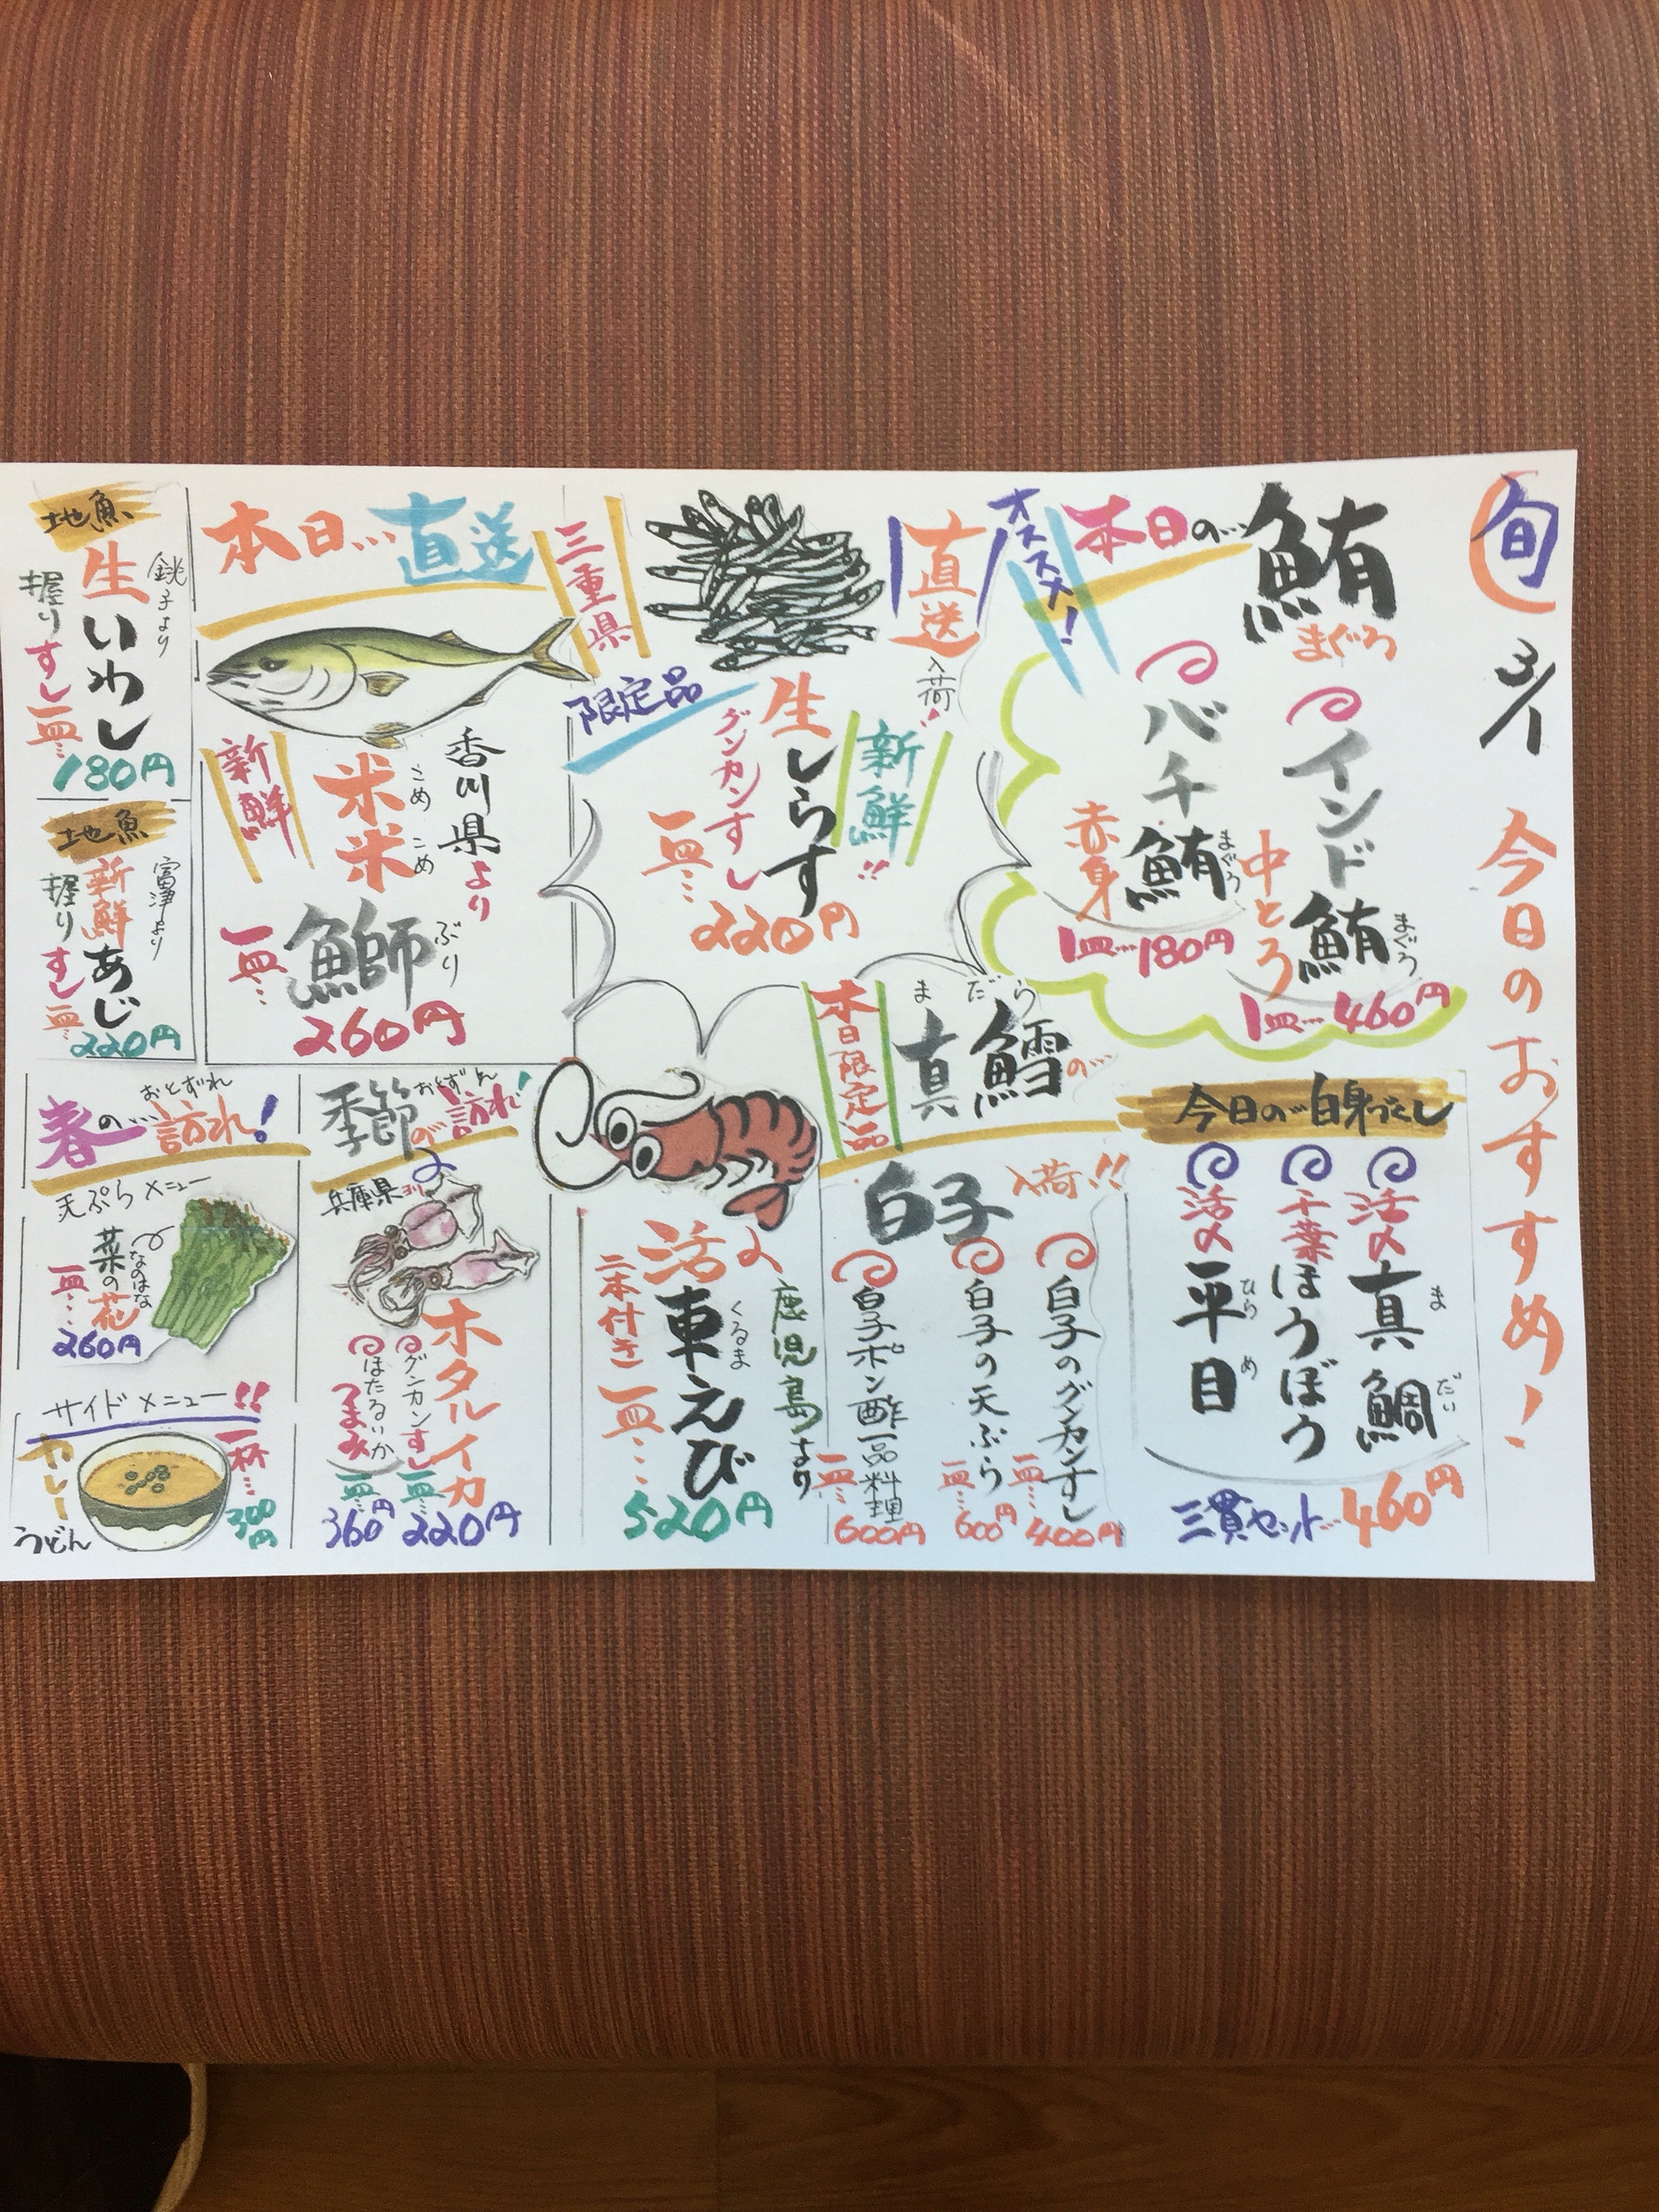 旬
3/1
今日のおすすめ!
オススメ!
本日の…鮪
まぐろ
インド鮪
まぐろ
中とろ
1皿…460円
バチ鮪
まぐろ
赤身
1皿…180円
今日の…白身づくし
活〆真鯛
まだい
千葉ほうぼう
活〆平目
ひらめ
三貫セット…460円
直送
入荷!
三重県
限定品
新鮮!!
生しらす
グンカンすし
一皿…
220円
本日限定品
まだら
真鱈の…
白子
入荷!!
白子のグンカンすし
一皿…
400円
白子の天ぷら
一皿…
600円
白子ポン酢一品料理
一皿…
600円
鹿児島より
活〆
車えび
くるま
二本付き一皿…
520円
本日…直送
香川県より
新鮮
米米
こめこめ
鰤
ぶり
一皿…
260円
季節の訪れ!
おとずれ
兵庫県ヨリ
ホタルイカ
グンカンすし
一皿…
220円
ほたるいか
つまみ
一皿…
360円
地魚
銚子より
生いわし
握りすし一皿…
180円
地魚
富津より
新鮮あじ
握りすし一皿…
220円
春の…訪れ!
おとずれ
天ぷらメニュー
菜の花
なのはな
一皿…
260円
サイドメニュー!!
カレー
うどん
一杯…
300円